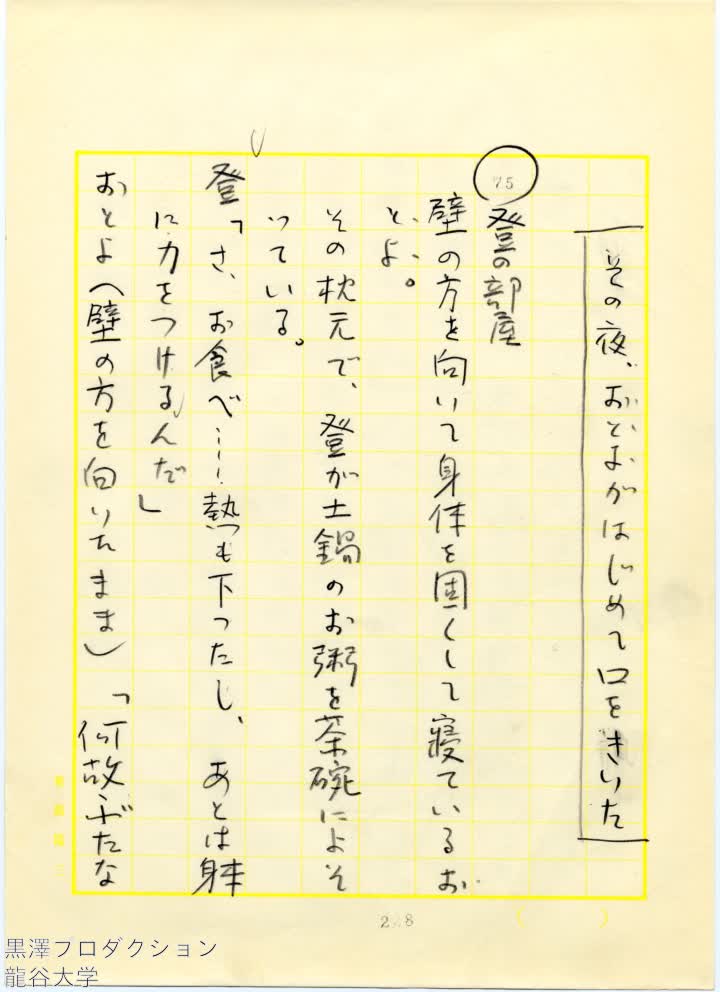 その夜、おとよがはじめて口をきいた
75
登の部屋
壁の方を向いて身体を固くして寝ているお
とよ。
その枕元で、登が土鍋のお粥を茶碗によそ
っている。
登「さ、お食べ……熱も下ったし、あとは身体
に力をつけるんだ」
おとよ（壁の方を向いたまま）「何故ぶたな
黒澤プロダクション
龍谷大学